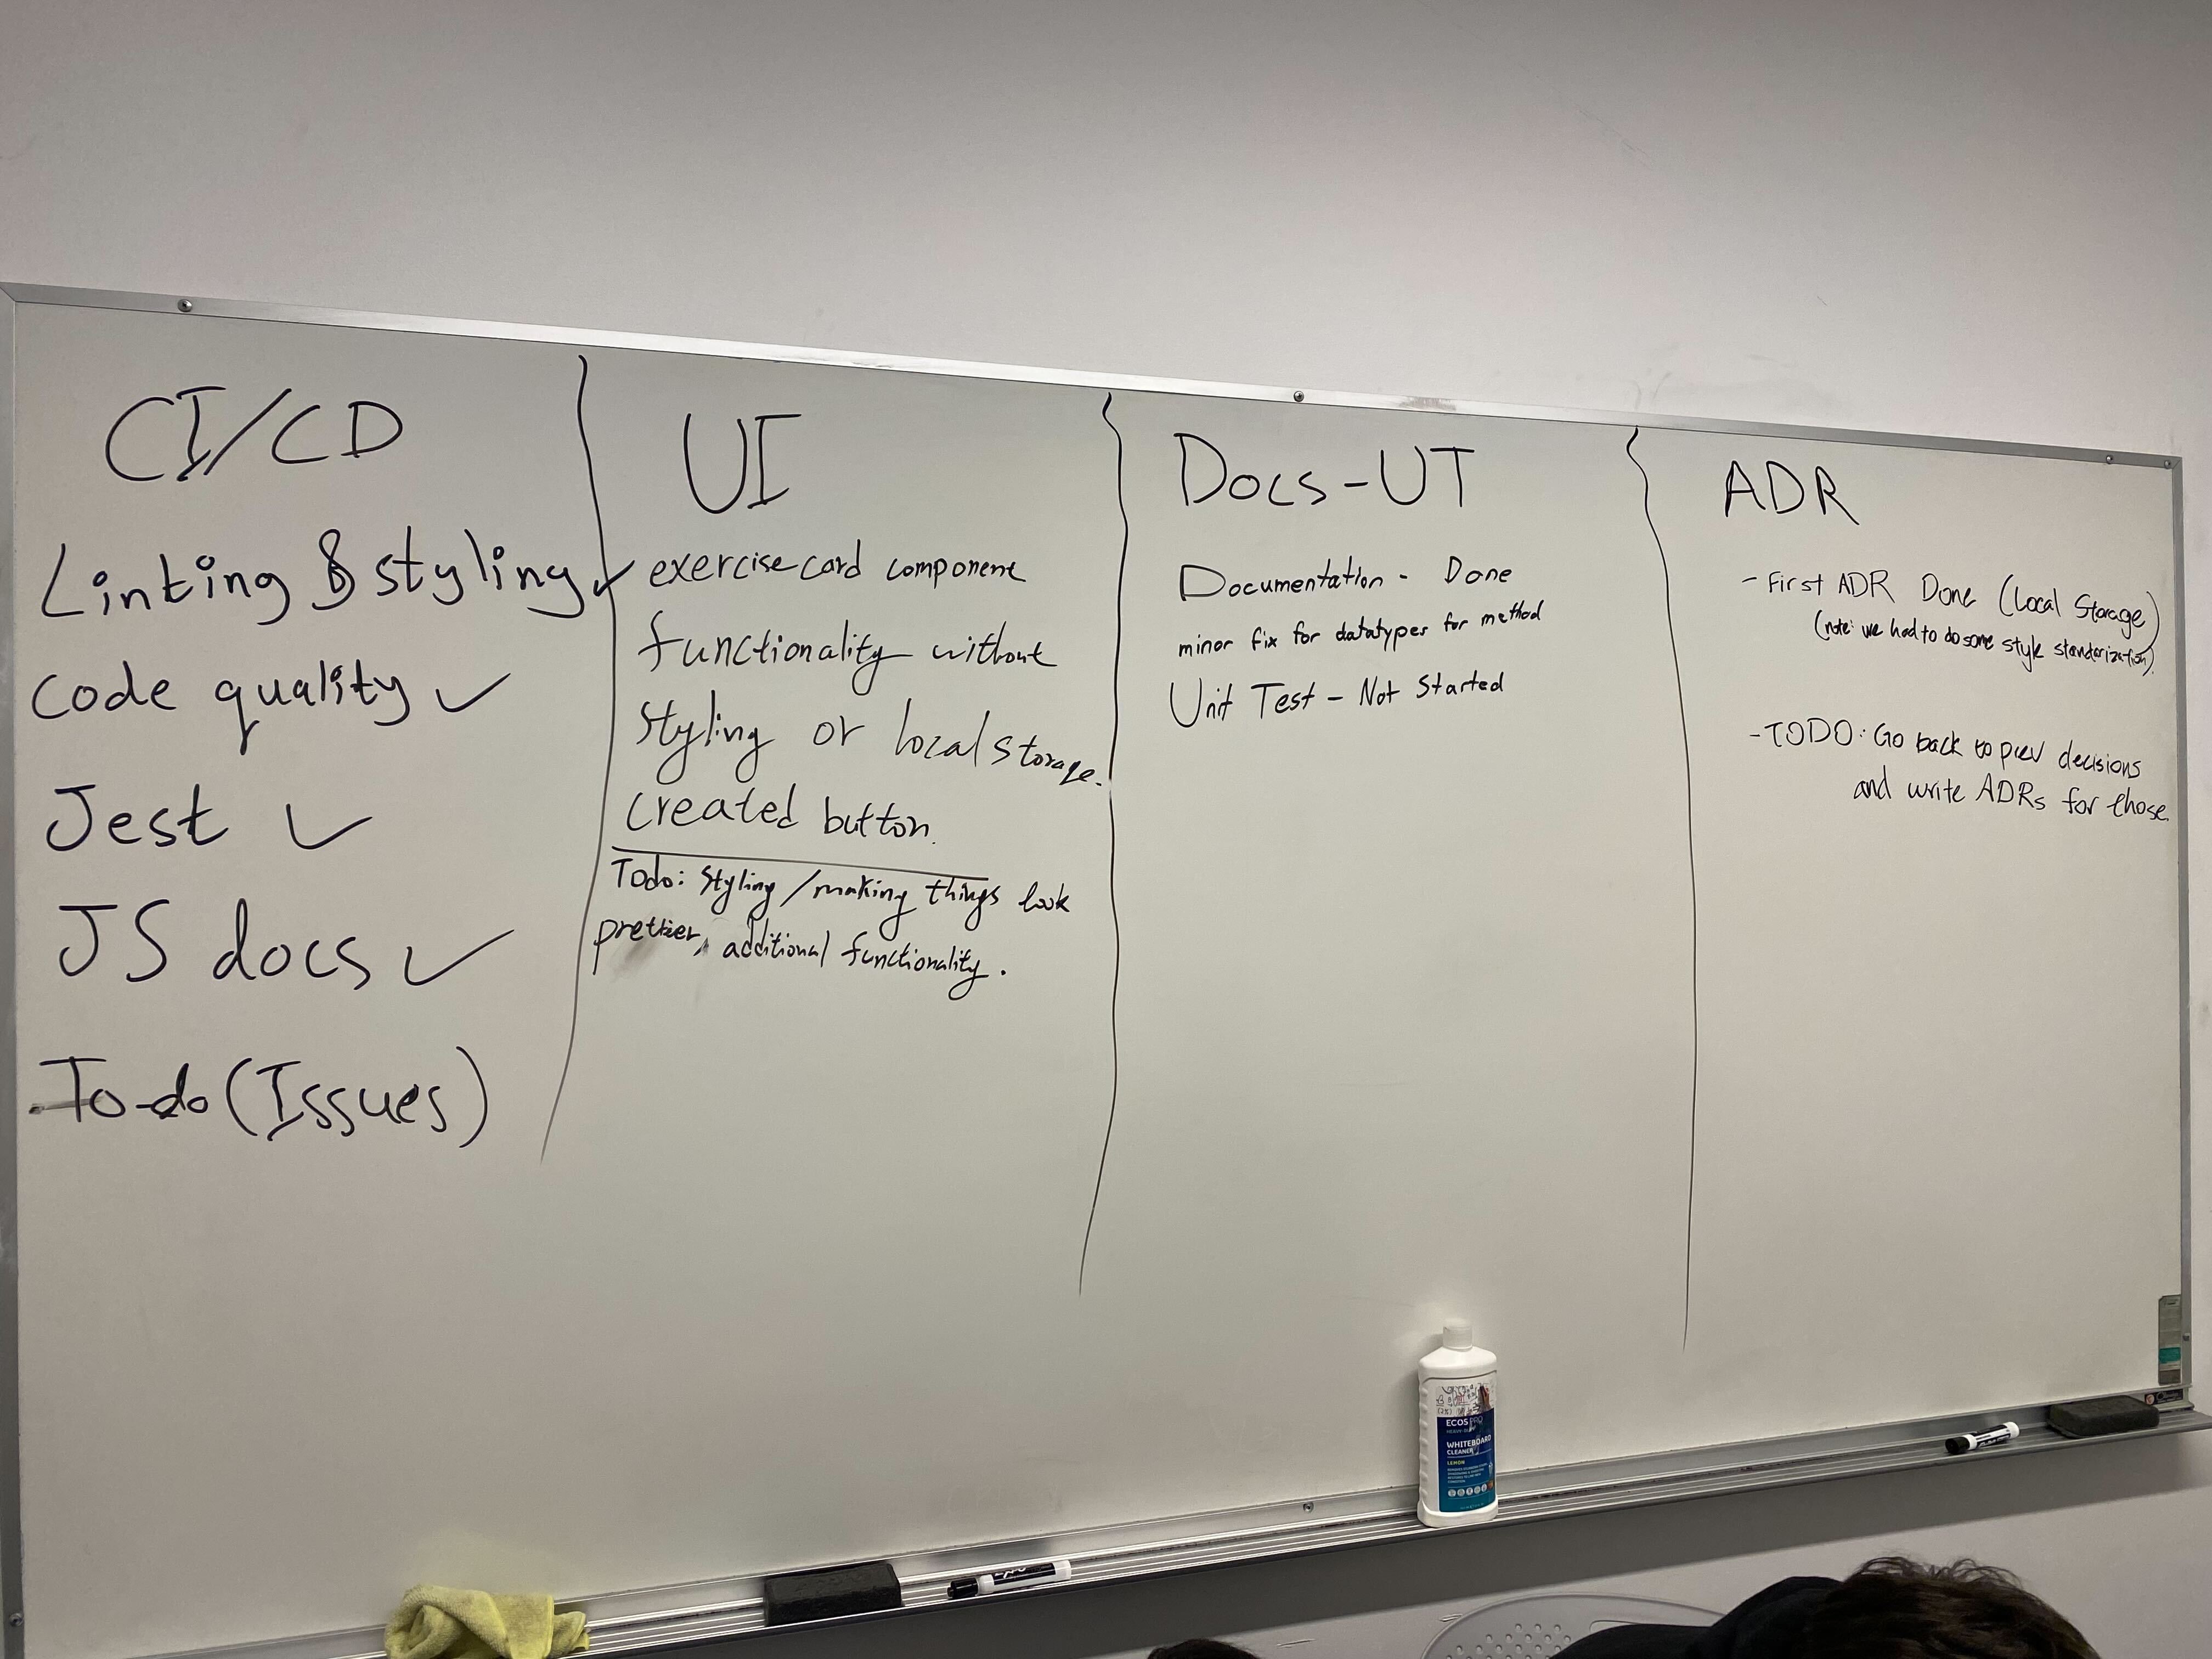 CI/CD
Linting & styling ✓
code quality ✓
Jest ✓
JS docs ✓
To-do (Issues)
UI
exercise card component
functionality without
styling or local storage.
created button.
Todo: styling/making things look
prettier, additional functionality.
Docs-UT
Documentation - Done
minor fix for datatypes for method
Unit Test - Not Started
ADR
- First ADR Done (Local Storage)
(note: we had to do some style standarization)
- TODO: Go back to prev decisions
and write ADRs for those.
ECOS PRO
WHITEBOARD
CLEANER
LEMON